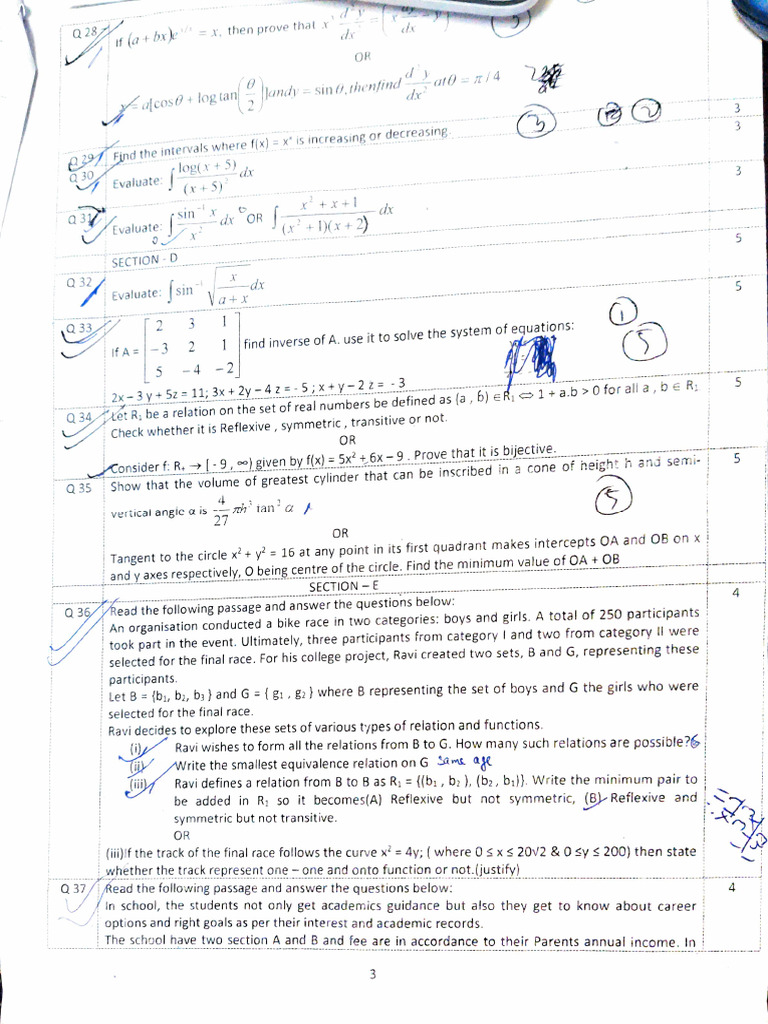 Q 28 If (a + bx)e^{y/x} = x, then prove that x³ d²y/dx² = (x dy/dx − y)²
OR
x = a[cosθ + log tan(θ/2)] andy = sin θ, thenfind d²y/dx² atθ = π / 4
3
Q 29 Find the intervals where f(x) = xˣ is increasing or decreasing. 3
Q 30 Evaluate: ∫ log(x + 5)/(x + 5)² dx 3
Q 31 Evaluate: ∫ sin⁻¹ x / x² dx OR ∫ (x² + x + 1)/((x² + 1)(x + 2)) dx 3
SECTION - D
Q 32 Evaluate: ∫ sin⁻¹ √(x/(a + x)) dx 5
Q 33 If A = [2 3 1; −3 2 1; 5 −4 −2] find inverse of A. use it to solve the system of equations: 5
2x – 3 y + 5z = 11; 3x + 2y – 4 z = - 5 ; x + y – 2 z = - 3
Q 34 Let R₁ be a relation on the set of real numbers be defined as (a , b) ∈R₁ ⇔ 1 + a.b > 0 for all a , b ∈ R₁ 5
Check whether it is Reflexive , symmetric , transitive or not.
OR
Consider f: R₊ → [ - 9 , ∞) given by f(x) = 5x² + 6x – 9 . Prove that it is bijective.
Q 35 Show that the volume of greatest cylinder that can be inscribed in a cone of height h and semi- 5
vertical angle α is 4/27 πh³ tan² α
OR
Tangent to the circle x² + y² = 16 at any point in its first quadrant makes intercepts OA and OB on x
and y axes respectively, O being centre of the circle. Find the minimum value of OA + OB
SECTION – E
Q 36 Read the following passage and answer the questions below: 4
An organisation conducted a bike race in two categories: boys and girls. A total of 250 participants
took part in the event. Ultimately, three participants from category I and two from category II were
selected for the final race. For his college project, Ravi created two sets, B and G, representing these
participants.
Let B = {b₁, b₂, b₃ } and G = { g₁ , g₂ } where B representing the set of boys and G the girls who were
selected for the final race.
Ravi decides to explore these sets of various types of relation and functions.
(i) Ravi wishes to form all the relations from B to G. How many such relations are possible? 6
(ii) Write the smallest equivalence relation on G same age
(iii) Ravi defines a relation from B to B as R₁ = {(b₁ , b₂ ), (b₂ , b₁)}. Write the minimum pair to
be added in R₁ so it becomes(A) Reflexive but not symmetric, (B) Reflexive and
symmetric but not transitive.
OR
(iii)If the track of the final race follows the curve x² = 4y; ( where 0 ≤ x ≤ 20√2 & 0 ≤y ≤ 200) then state
whether the track represent one – one and onto function or not.(justify)
Q 37 Read the following passage and answer the questions below: 4
In school, the students not only get academics guidance but also they get to know about career
options and right goals as per their interest and academic records.
The school have two section A and B and fee are in accordance to their Parents annual income. In
3